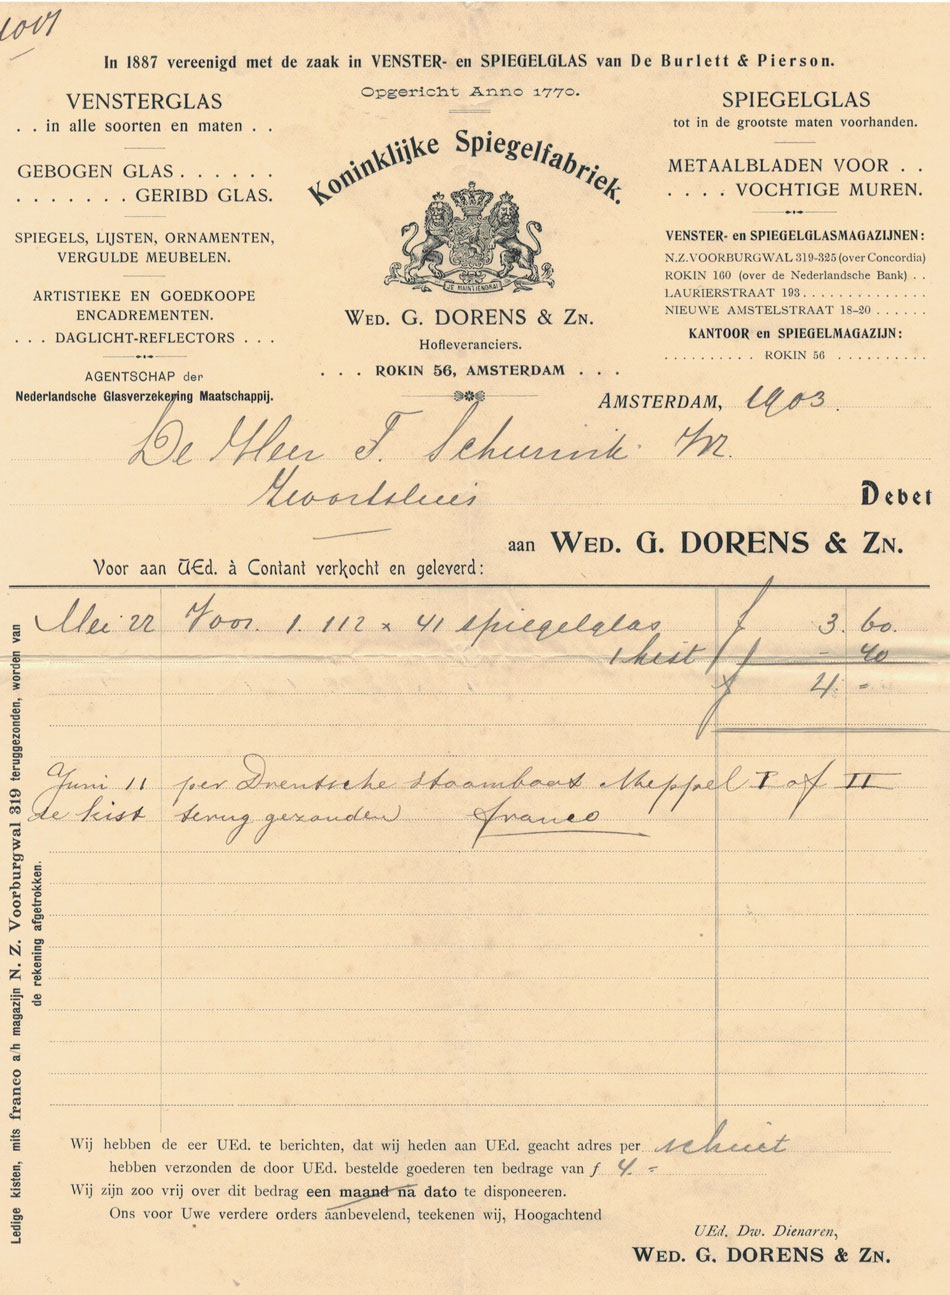 In 1887 vereenigd met de zaak in VENSTER- en SPIEGELGLAS van De Burlett & Pierson.
Opgericht Anno 1770.
VENSTERGLAS
. . in alle soorten en maten . .
GEBOGEN GLAS . . . . . .
. . . . . . . GERIBD GLAS.
SPIEGELS, LIJSTEN, ORNAMENTEN,
VERGULDE MEUBELEN.
ARTISTIEKE EN GOEDKOOPE
ENCADREMENTEN.
. . . DAGLICHT-REFLECTORS . . .
AGENTSCHAP der
Nederlandsche Glasverzekering Maatschappij.
Koninklijke Spiegelfabriek.
JE MAINTIENDRAI
WED. G. DORENS & ZN.
Hofleveranciers.
. . . ROKIN 56, AMSTERDAM . . .
SPIEGELGLAS
tot in de grootste maten voorhanden.
METAALBLADEN VOOR . .
. . . . VOCHTIGE MUREN.
VENSTER- en SPIEGELGLASMAGAZIJNEN:
N.Z.VOORBURGWAL 319-325 (over Concordia)
ROKIN 160 (over de Nederlandsche Bank) . .
LAURIERSTRAAT 193 . . . . . . . . . . . . .
NIEUWE AMSTELSTRAAT 18-20 . . . . . .
KANTOOR en SPIEGELMAGAZIJN:
. . . . . . . . . . ROKIN 56 . . . . . . . . . .
AMSTERDAM, 1903.
De Heer F. Schurink Jr.
Zwartsluis
Debet
aan WED. G. DORENS & ZN.
Voor aan UEd. à Contant verkocht en geleverd:
Mei 22 Voor. 1. 112 x 41 spiegelglas f 3. 60.
1 kist f - 40
f 4. =
Juni 11 per Drentsche stoomboot Meppel I of II
de kist terug gezonden franco
Ledige kisten, mits franco a/h magazijn N. Z. Voorburgwal 319 teruggezonden, worden van
de rekening afgetrokken.
Wij hebben de eer UEd. te berichten, dat wij heden aan UEd. geacht adres per schuit
hebben verzonden de door UEd. bestelde goederen ten bedrage van f 4. =
Wij zijn zoo vrij over dit bedrag een maand na dato te disponeeren.
Ons voor Uwe verdere orders aanbevelend, teekenen wij, Hoogachtend
UEd. Dw. Dienaren,
WED. G. DORENS & ZN.